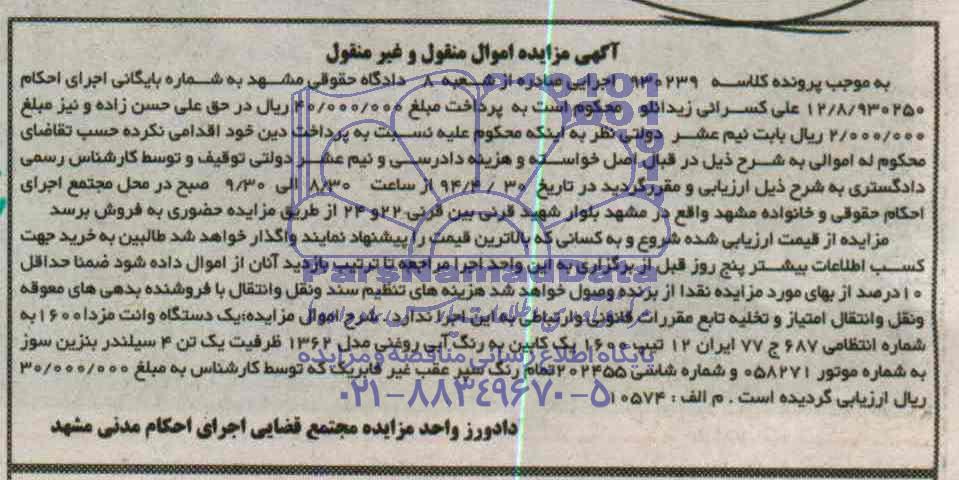 آگهی مزایده اموال منقول و غیر منقول
به موجب پرونده کلاسه ۹۳۰۲۳۹ اجرایی صادره از شعبه ۸ دادگاه حقوقی مشهد به شماره بایگانی اجرای احکام
۱۲/۸/۹۳۰۲۵۰ علی کسرائی زیدانلو محکوم است به پرداخت مبلغ ۴۰/۰۰۰/۰۰۰ ریال در حق علی حسن زاده و نیز مبلغ
۲/۰۰۰/۰۰۰ ریال بابت نیم عشر دولتی نظر به اینکه محکوم علیه نسبت به پرداخت دین خود اقدامی نکرده حسب تقاضای
محکوم له اموالی به شرح ذیل در قبال اصل خواسته و هزینه دادرسی و نیم عشر دولتی توقیف و توسط کارشناس رسمی
دادگستری به شرح ذیل ارزیابی و مقررگردید در تاریخ ۳۰ / ۹۴/۴ از ساعت ۸/۳۰ الی ۹/۳۰ صبح در محل مجتمع اجرای
احکام حقوقی و خانواده مشهد واقع در مشهد بلوار شهید قرنی بین قرنی ۲۲و ۲۴ از طریق مزایده حضوری به فروش برسد
مزایده از قیمت ارزیابی شده شروع و به کسانی که بالاترین قیمت را پیشنهاد نمایند واگذار خواهد شد طالبین به خرید جهت
کسب اطلاعات بیشتر پنج روز قبل از برگزاری به این واحد اجرا مراجعه تا ترتیب بازدید آنان از اموال داده شود ضمنا حداقل
۱۰درصد از بهای مورد مزایده نقدا از برنده وصول خواهد شد هزینه های تنظیم سند ونقل وانتقال با فروشنده بدهی های معوقه
ونقل وانتقال امتیاز و تخلیه تابع مقررات قانونی وارتباطی به این اجرا ندارد. شرح اموال مزایده:یک دستگاه وانت مزدا۱۶۰۰به
شماره انتظامی ۶۸۷ ج ۷۷ ایران ۱۲ تیپ ۱۶۰۰ یک کابین به رنگ آبی روغنی مدل ۱۳۶۲ ظرفیت یک تن ۴ سیلندر بنزین سوز
به شماره موتور ۰۵۸۲۷۱ و شماره شاسی ۲۰۲۴۵۵تمام رنگ سپر عقب غیر فابریک که توسط کارشناس به مبلغ ۳۰/۰۰۰/۰۰۰
ریال ارزیابی گردیده است . م الف : ۱۰۵۷۴
دادورز واحد مزایده مجتمع قضایی اجرای احکام مدنی مشهد
ParsNamadData
پایگاه اطلاع رسانی مناقصه و مزایده
۰۲۱-۸۸۳۴۹۶۷۰-۵